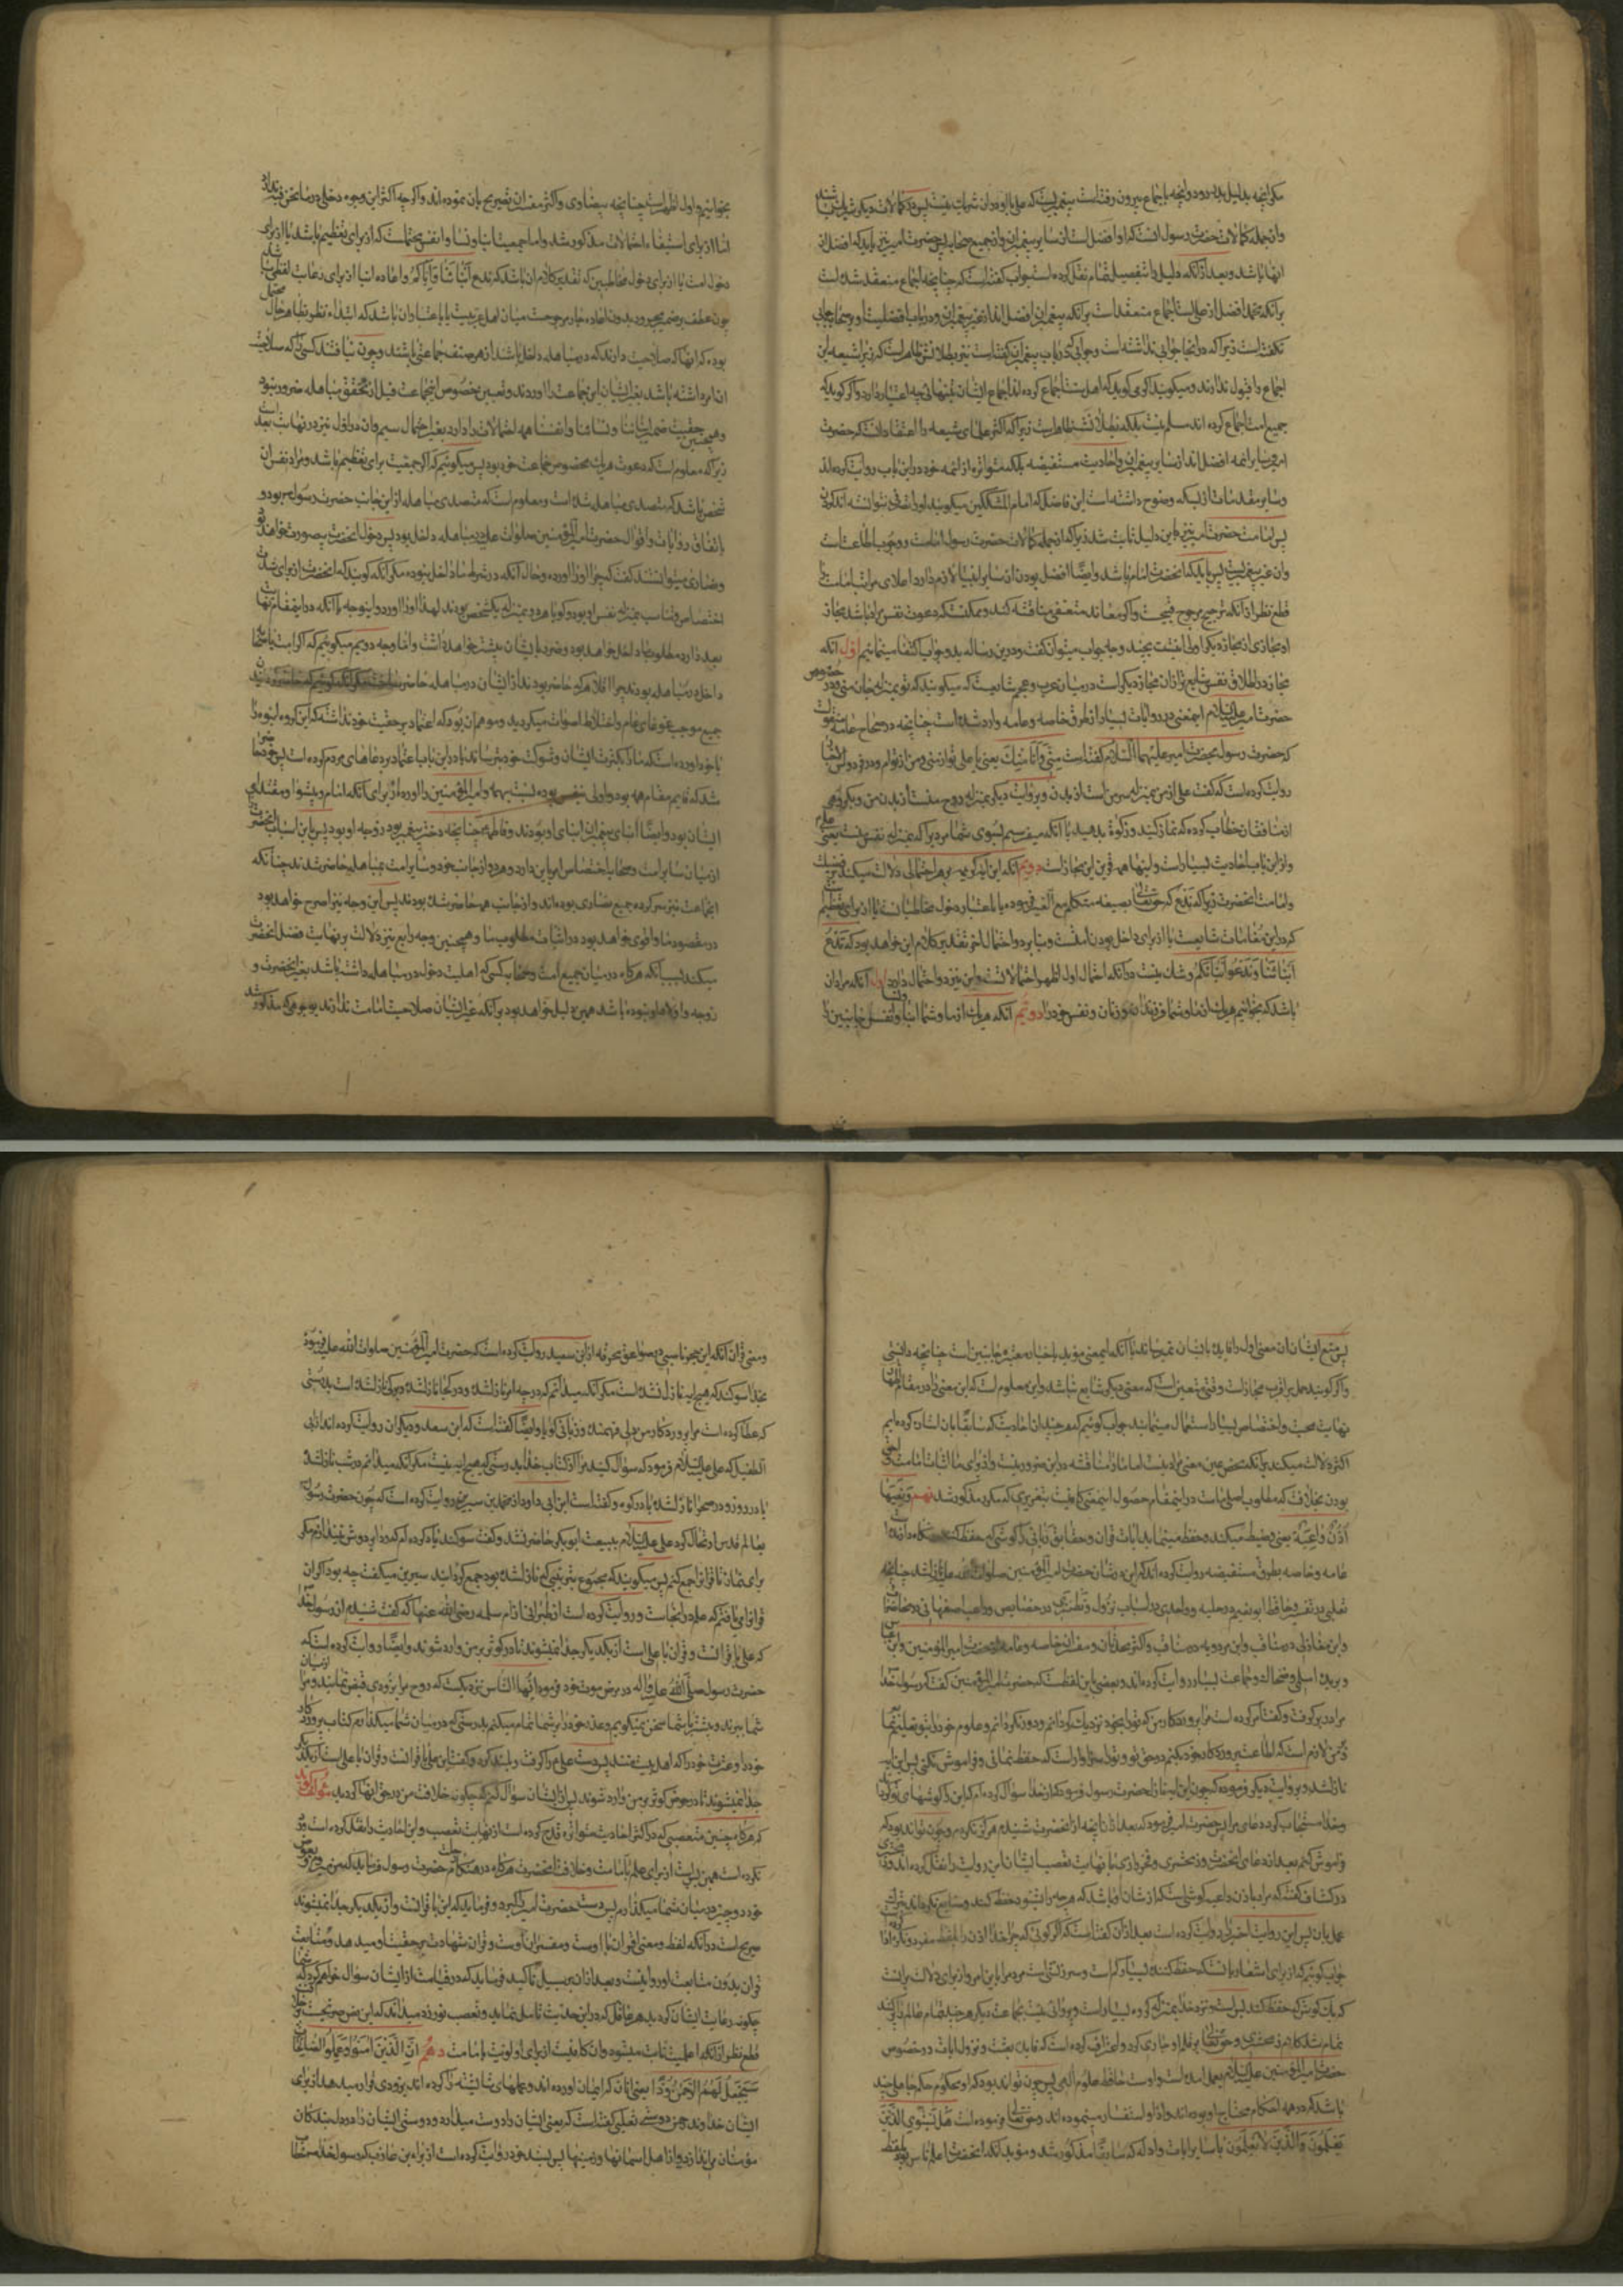 مکر انچه بدلیل بدر رود و انچه باجماع بیرون رفته است پیغمبریست که علی با او در ان شریک نیست پس در کمالات دیکر شریک باشد
و از جمله کمالات حضرت رسول انست که او افضل است از سایر پیغمبران و از جمیع صحابه پس حضرت امیر نیز باید که افضل از
انها باشد و بعد از آنکه دلیل را بتفصیل تمام نقل کرده است جواب گفته است که چنانچه اجماع منعقد شده است
بر آنکه محمد افضل از علی است اجماع منعقد است بر آنکه پیغمبران افضل اند از غیر پیغمبران و در باب افضلیت او بر صحابه جوابی
نگفته است زیرا که در انجا جوابی نداشته است و جوابی که در باب پیغمبران گفته است نیز بطلانش ظاهر است که زیرا شیعه این
اجماع را قبول ندارند و میکویند اگر می کوید که اهل سنت اجماع کرده اند اجماع ایشان بتنهائی چه اعتبار دارد و اگر کوید که
جمیع امت اجماع کرده اند مسلم نیست بلکه بطلانش ظاهر است زیرا که اکثر علمای شیعه را اعتقاد انست که حضرت
امیر و سایر ائمه افضل اند از سایر پیغمبران و احادیث مستفیضه بلکه متواتره از ائمه خود در این باب روایت کرده اند
و سایر مقدمات از بسکه وضوح داشته است این فاضل که امام المشککین میکویند او را تصرفی نتوانسته اند کرد
پس امامت حضرت امیر نیز باین دلیل ثابت شد زیرا که از جمله کمالات حضرت رسول امامت و وجوب اطاعت است
قطع نظر از آنکه ترجیح مرجوح قبیحست و اگر معاند متعصفی مناقشه کند و ممکنست که دعوت نفس مراد باشد مجاز
او مجازی از مجاز دیکر اولی نیست بچند وجه جواب میتوان گفت و در این رساله بدو جواب اکتفا مینمائیم اول آنکه
مجاز در اطلاق نفس شایع تر از ان مجاز دیکر است در میان عرب و عجم شایعست که میکویند که تو بمنزله جان منی و در خصوص
حضرت امیر علیه السلام اینمعنی در روایات بسیار از طرق خاصه و عامه وارد شده است چنانچه در صحاح عامه منقولست
که حضرت رسول بحضرت امیر علیهما السلام گفته است انت منی و انا منک یعنی یا علی تو از منی و من از توام و در فردوس الاخبار
روایت کرده است که گفت علی از من بمنزله سر من است از بدن و بروایت دیکر بمنزله روح منست از بدن من و دیکر
از منافقان خطاب کرده که نماز کنید و زکوة بدهید یا آنکه میفرستم بسوی شما مردی را که بمنزله نفس منست یعنی علی
و از این باب احادیث بسیار است و اینها همه قرینه این مجاز است دویم آنکه این آیه کریمه بر هر احتمالی دلالت میکند بر فضیلت
و امامت انحضرت زیرا که ندع که حقتعالی بصیغه متکلم مع الغیر فرموده یا باعتبار دخول مخاطبانست یا از برای تعظیم
کردن این مقامات شایعست یا از برای داخل بودن امتست و بنا بر دو احتمال اخر تقدیر کلام این خواهد بود که ندع
ابنائنا و ندعو ابنائکم و شک نیست در آنکه احتمال اول اظهر احتمالاتست و این نیز دو احتمال دارد اول آنکه مراد ان
باشد که بخوانیم هر یک از ما و شما فرزندان و زنان و نفس خود را دویم آنکه هر یک از ما و شما ابنا و نفس جانبین را
بخوانیم و اول اظهر است چنانچه بیضاوی و اکثر مفسران تصریح بان نموده اند و اگر چه اکثر این وجوه دخلی در ما نحن فیه ندارد
اما از برای استیفاء احتمالات مذکور شد و اما جمعیت ابنا و نسا و انفس محتمل است که از برای تعظیم باشد یا از برای
دخول امت یا از برای دخول مخاطبین که تقدیر کلام ان باشد که ندع ابنائنا و ایاکم و اعاده ابنا از برای رعایت لفظی باشد
چون عطف بر ضمیر مجرور بدون اعاده جار مرجوحست میان اهل عربیت یا باعتبار ان باشد که ابتداء نظر بظاهر حال محتمل
بوده که انها که صلاحیت دارند که در مباهله داخل باشند از هر صنف جماعتی باشند و چون نیافتند کسی را که صلاحیت
ان امر داشته باشد بغیر ایشان این جماعت را اوردند و تعیین بخصوص انجماعت قبل از تحقق مباهله ضرور نبود
و همچنین جمعیت ضمیر ابنائنا و نسائنا و انفسنا همه احتمالات را دارد بغیر احتمال سیم و ان در اول نیز در نهایت بعد است
زیرا که معلوم است که دعوت هر یک مخصوص جماعت خود بود پس میکوئیم که اگر جمعیت برای تعظیم باشد و مراد نفس ان
شخص باشد که متصدی مباهله شده است و معلوم است که متصدی مباهله از این جانب حضرت رسول بود و
باتفاق روایات و اقوال حضرت امیر المؤمنین صلوات علیه در مباهله داخل بود پس دخول انحضرت بیصورت خواهد بود
و نصاری میتوانستند گفت که چرا او را اورده و حال آنکه در شرط ما داخل نبوده مگر آنکه کویند که انحضرت از برای شدت
اختصاص و تناسب بمنزله نفس او بود و کویا هر دو بمنزله یکشخص بودند لهذا او را اورد و اینوجه با آنکه در این مقام نهایت
بعد دارد مطلوب ما داخل خواهد بود و ضرر بایشان بیشتر خواهد داشت و اما وجه دویم میکوئیم که اگر امت یا صحابه
داخل در مباهله بودند چرا اقلا هر که حاضر بودند از ایشان در مباهله حاضر
جمیع موجب غوغای عام و اختلاط اصوات میکردید و موهم ان بود که اعتماد بر حقیت خود نداشته که این کروه انبوه را
با خود اورده است که ما را بکثرت ایشان و شوکت خود بترساند یا در این باب اعتماد بر دعاهای مردم کرده است پس خود
شد که قایم مقام همه بود و اولی بنفس بوده نسبت بهمه و امیر المؤمنین را اورده از برای آنکه امام و پیشوا و مقتدای
ایشان بود و ایضا ابنای پیغمبران ابنای او بودند و فاطمه چنانچه دختر پیغمبر بود زوجه او بود پس باین اسباب انحضرت
از میان سایر امت و صحابه اختصاص امر باین دارد و هر دو از جانب خود و سایر امت بمباهله حاضر شدند چنانکه
انجماعت نیز سرکرده جمیع نصاری بوده اند و از جانب همه حاضر شده بودند پس این وجه نیز اصرح خواهد بود
در مقصود ما و اقوی خواهد بود در اثبات مطلوب ما و همچنین وجه رابع نیز دلالت بر نهایت فضل انحضرت
میکند بسبب آنکه هرگاه در میان جمیع امت و صحابه کسی که اهلیت دخول در مباهله داشته باشد بغیر انحضرت و
زوجه و اولاد او نبوده باشد همین دلیل خواهد بود بر آنکه غیر ایشان صلاحیت امامت ندارند بوجوهی که مذکور شد
وا گر کویند حمل بر اقرب مجازات وقتی متعین است که معنی دیکر شایع نباشد و این معلوم است که این معنی را در مقام اظهار
نهایت محبت و اختصاص بسیار استعمال مینمایند جواب کوئیم که هر چند ان احادیث که سابقا بان اشاره کرده ایم
اکثر دلالت میکند بر آنکه محض همین معنی مراد نیست اما ما را مناقشه در این ضرور نیست و از برای ما اثبات امامت و احق
بودن بخلافت که مطلوب اصلی ماست در اینمقام حصول اینمعنی کافیست بتقریری که مکرر مذکور شد نهم و تعیها
اذن واعیة یعنی و ضبط میکند و حفظ مینماید ایات قران و حقایق ربانی را گوشی که حفظ کننده و نگاه دارنده است
عامه و خاصه بطرق مستفیضه روایت کرده اند که این در شان حضرت امیر المؤمنین صلوات الله علیه نازل شد چنانچه
ثعلبی در تفسیر و حافظ ابو نعیم در حلیه و واحدی در اسباب نزول و نطنزی در خصایص و راغب اصفهانی در محاضرات
و ابن مغازلی در مناقب و ابن مردویه در مناقب و اکثر محدثان و مفسران خاصه و عامه از حضرت امیر المؤمنین و ابن عباس
و بریده اسلمی و ضحاک و جماعت بسیار روایت کرده اند و بعضی باین لفظست که حضرت امیر المؤمنین گفت که رسول خدا
مرا در بر گرفت و گفت امر کرده است مرا پروردکار من که ترا بخود نزدیک گردانم و دور نگردانم و علوم خود را بتو تعلیم نمایم
و بر من لازم است که اطاعت پروردکار خود بکنم در حق تو و ترا سزاوار است که حفظ نمائی و فراموش نکنی پس این آیه
نازل شد و بروایت دیکر فرموده که چون این آیه نازل شد حضرت رسول فرمود که از خدا سؤال کردم که این گوشهای تو گرداند
و خدا مستجاب کرد دعای مرا پس حضرت امیر فرمود که بعد از ان انچه از انحضرت شنیدم هرگز فراموش نکردم و چون تواند بود که
فراموش کنم بعد از دعای انحضرت و زمخشری و فخر رازی با نهایت تعصب ایشان این روایت را نقل کرده اند و زمخشری
در کشاف گفته که مراد باذن واعیه گوشی است که از شان او باشد که هر چه را شنود حفظ کند و ضایع نگرداند بترک
عمل بان پس این روایت اخیر را روایت کرده است بعد از ان گفته است که اگر گوئی که چرا خدا اذن را بلفظ مفرد و نکره ادا کرده
جواب گوئیم که از برای اشعار بانست که حفظ کننده بسیار کم است و سرزنش است مردم را باین امر و از برای دلالت بر انست
که یک گوش که حفظ کند بس است و نزد خدا بمنزله گروه بسیار است و پروائی نیست بجماعت دیکر هر چند تمام عالم را پر کنند
تمام شد کلام زمخشری و حقتعالی بر قلم او جاری کرد و اعتراف کرده است که قابلیت بعثت و نزول ایات در خصوص
حضرت امیر المؤمنین علیه السلام بعمل امده است و اوست حافظ علوم الهی پس چون تواند بود که او محکوم حکم جاهلی چند
باشد که در همه احکام محتاج باو بوده اند و از او استفسار مینموده اند و حقتعالی فرموده است هل یستوی الذین
یعلمون والذین لا یعلمون با سایر ایات و ادله که سابقا مذکور شد و مؤید آنکه انحضرت اعلم ناس بوده بلفظ
و معنی قران آنکه ابن حجر ناصبی در صواعق محرقه از ابن سعید روایت کرده است که حضرت امیر المؤمنین صلوات الله علیه فرمود
بخدا سوگند که هیچ آیه نازل نشده است مگر آنکه میدانم که در چه امر نازل شده و در کجا نازل شده و بر کی نازل شده است بدرستی
که عطا کرده است مرا پروردکار من دلی فهمنده و زبانی گویا و ایضا گفته است که ابن سعد و دیکران روایت کرده اند از ابی
الطفیل که علی علیه السلام فرمود که سؤال کنید مرا از کتاب خدا بدرستی که هیچ آیه نیست مگر آنکه میدانم در شب نازل شده
یا در روز و در صحرا نازل شده یا در کوه و گفته است ابن ابی داود از محمد بن سیرین روایت کرده است که چون حضرت رسول
بعالم قدس ارتحال کرد علی علیه السلام ببیعت ابو بکر حاضر نشد و گفت سوگند یاد کرده ام که ردا بر دوش نیندازم مگر
برای نماز تا قران را جمع کنم پس میکویند که مجموع بترتیبی که نازل شده بود جمع کردانید سیرین میگفت چه بود اگر ان
قرانرا می یافتم که علم در انجاست و روایت کرده است از طبرانی از ام سلمه رضی الله عنها که گفت شنیدم از رسول خدا
که علی با قرانست و قران با علی است از یکدیگر جدا نمیشوند تا در کوثر بر من وارد شوند و ایضا روایت کرده است که
حضرت رسول صلی الله علیه واله در مرض موت خود فرمود ایها الناس نزدیکست که روح مرا بزودی قبض نمایند و مرا از میان
شما ببرند و بیشتر با شما سخن نمیگویم و عذر خود را بر شما تمام میکنم بدرستی که در میان شما میگذارم کتاب پروردکار
خود را و عترت خود را که اهل بیت منند پس دست علی را گرفت و بلند کرد و گفت این علی با قرانست و قران با علی است از یکدیگر
جدا نمیشوند تا در حوض کوثر بر من وارد شوند پس از ایشان سؤال کنم که چگونه خلافت من در حق انها کردید مؤلف گوید
که هرگاه چنین متعصبی که در اکثر احادیث متواتره قدح کرده است از نهایت تعصب و این احادیث را نقل کرده است و رد
نکرده است همین بس است از برای علم بامامت و خلافت انحضرت هرگاه در هنگام رحلت حضرت رسول فرماید که من میروم و بعوض
خود دو چیز در میان شما میگذارم پس دست حضرت امیر را بگیرد و فرماید که این با قرانست و از یکدیگر جدا نمیشوند
صریح است در آنکه لفظ و معنی قران با اوست و مفسر ان اوست و قران شهادت بر حقیت او میدهد و متابعت
قران بدون متابعت او روا نیست و بعد از ان بر سبیل تاکید فرماید که در قیامت از ایشان سؤال خواهم کرد که شما
چگونه رعایت ایشان کردید هر عاقل که در این حدیث تامل نماید و تعصب نورزد میداند که این نص صریحست بر خلافت
قطع نظر از آنکه اعلمیت ثابت میشود و ان کافیست از برای اولویت بامامت دهم ان الذین امنوا وعملوا الصالحات
سیجعل لهم الرحمن ودا یعنی انان که ایمان اورده اند و عملهای شایسته کرده اند بزودی قرار میدهد از برای
ایشان خداوند رحمن دوستی ثعلبی گفته است که یعنی ایشان را دوست میدارد و دوستی ایشان را در دل بندگان
مؤمنان میاندازد از اهل اسمانها و زمینها پس بسند خود روایت کرده است از براء بن عازب که رسول خدا صلی